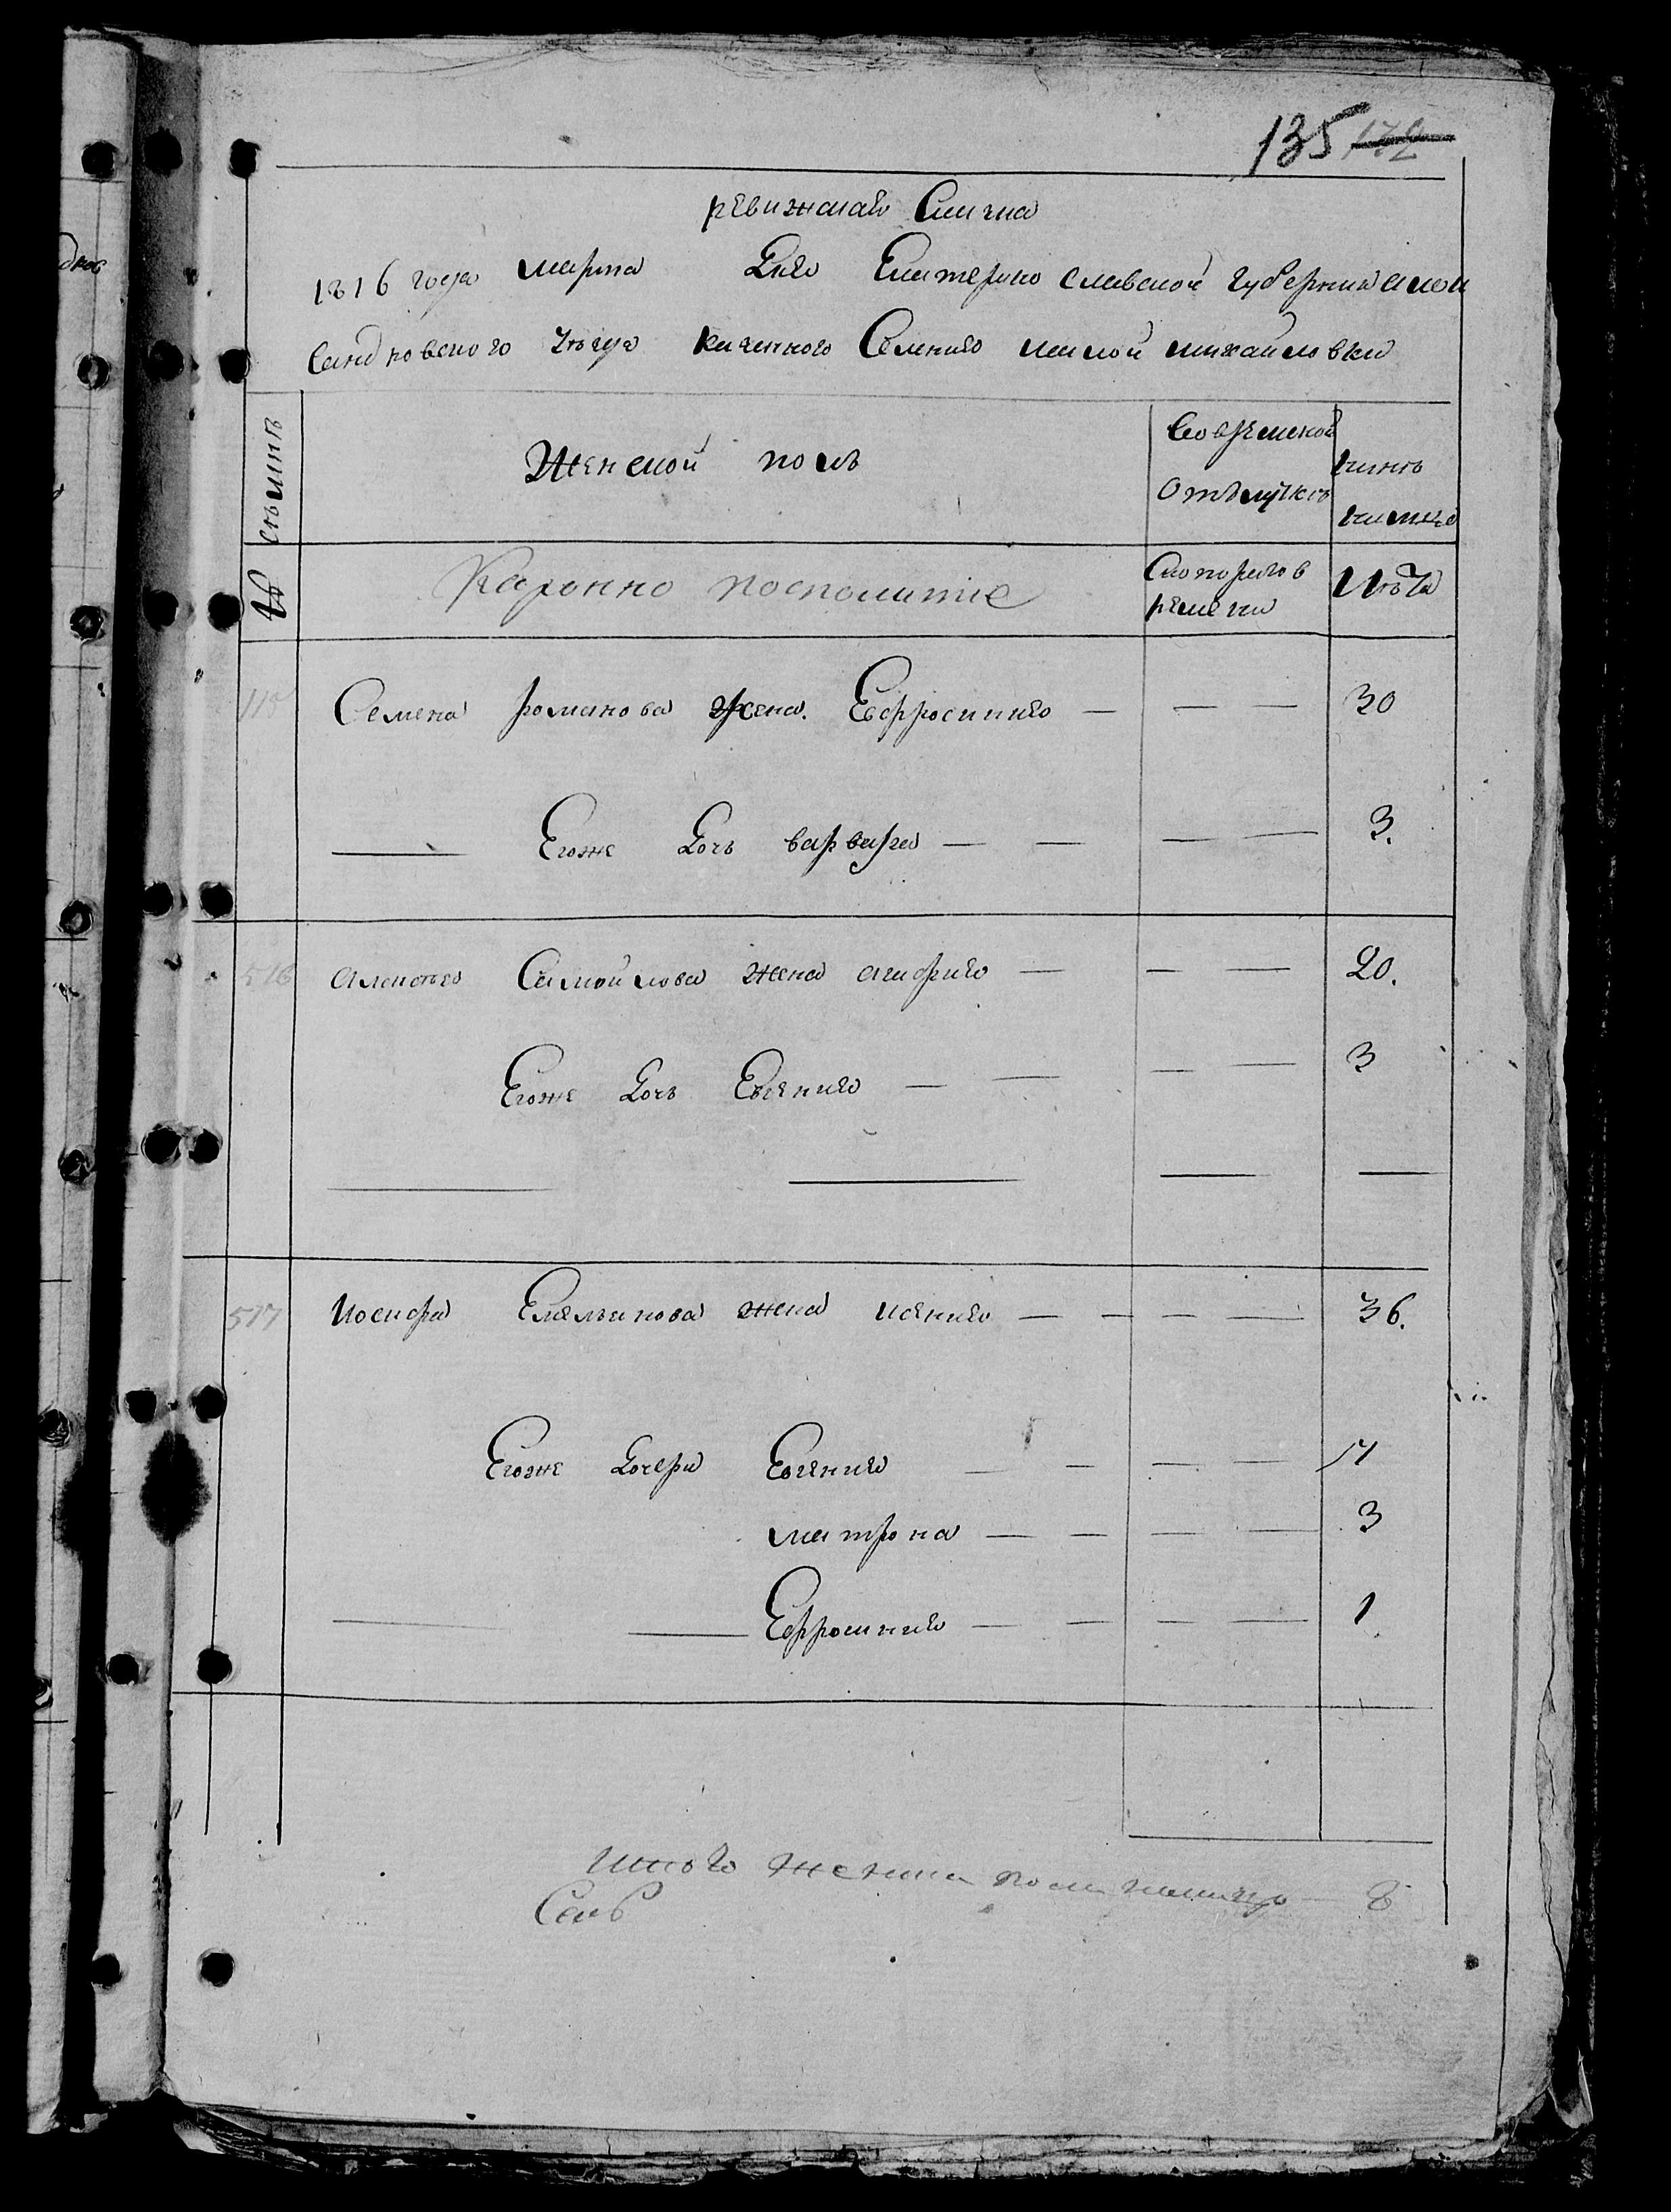 135 172
ревижская Сказка
1816 года марта Дня Екатерино славской губернии алек
сандровского уезда казенного Селения малой михайловки
семьи
Женской полъ
Во временной
отлучке
ныне
на лицо
№
Каронно посполитіе
Съ котораго в
ремени
Лѣта
Семена романова жена. Евфросиния — — — 30
Егоже Дочь варвара — — — — 3.
516 Алексея Самойлова жена агафия — — — 20.
Егоже Дочь Евгения — — — — 3
517 Иосифа Емельянова жена ксения — — — — 36.
Егоже Дочери Евгения — — — — 17
матрона — — — — 3
Ефросиния — — — — 1
итого женска пола на лицо — 8